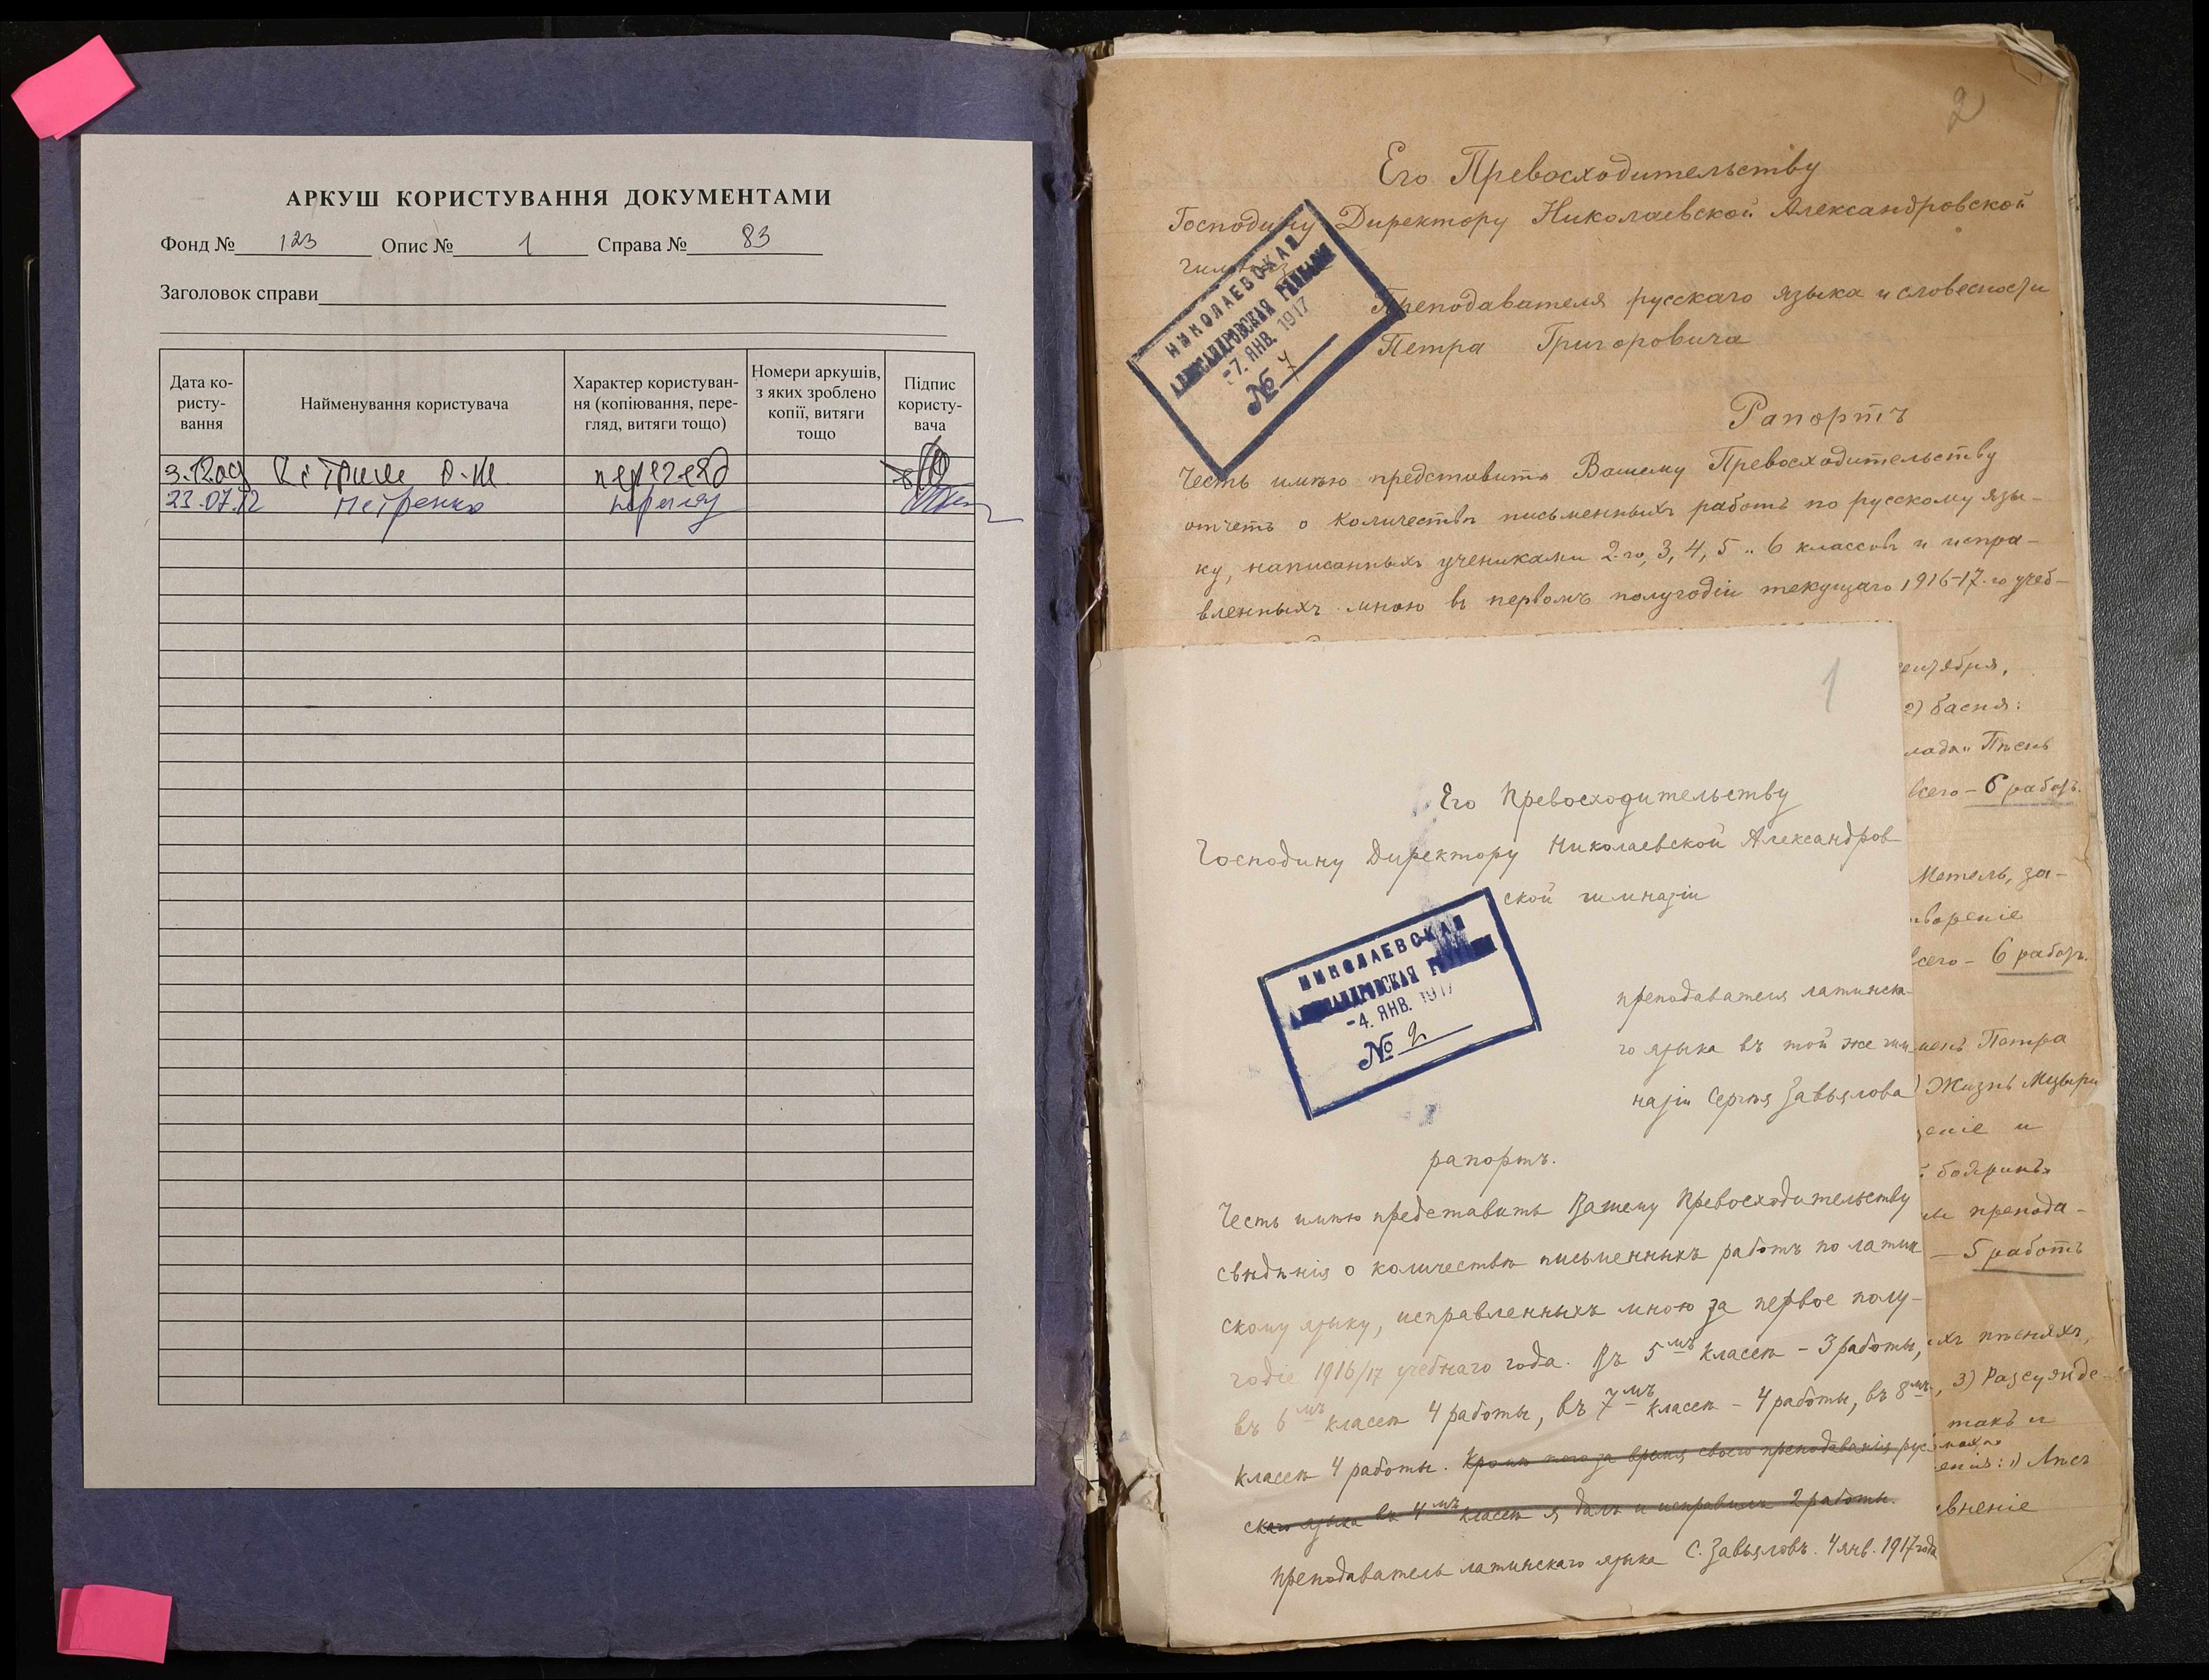 АРКУШ КОРИСТУВАННЯ ДОКУМЕНТАМИ
Фонд № 123 Опис № 1 Справа № 83
Заголовок справи
Дата ко-
ристу-
вання
Найменування користувача
Характер користуван-
ня (копіювання, пере-
гляд, витяги тощо)
Номери аркушів,
з яких зроблено
копії, витяги
тощо
Підпис
користу-
вача
3.12.09 перегляд
23.07.12 Петренко перегляд
2
Его Превосходительству
Господину Директору Николаевской Александровской
гимназіи
Преподавателя русскаго языка и словесности
Петра Григоровича
НИКОЛАЕВСКАЯ
АЛЕКСАНДРОВСКАЯ ГИМНАЗІЯ
-7. ЯНВ. 1917
№ 7
Рапортъ
Честь имѣю представить Вашему Превосходительству
отчетъ о количествѣ письменныхъ работъ по русскому язы-
ку, написанныхъ учениками 2-го, 3, 4, 5 и 6 классовъ и испра-
вленныхъ мною въ первомъ полугодіи текущаго 1916-17-го учеб-
сентября,
2) басня:
Пѣснь
всего - 6 работъ.
Метель, за-
всего - 6 работъ.
Петра
Жизнь Мцыри
и
бояринъ
препода-
- 5 работъ
пѣсняхъ,
3) Разсужде-
такъ и
1
Его Превосходительству
Господину Директору Николаевской Александров-
ской гимназіи
НИКОЛАЕВСКАЯ
АЛЕКСАНДРОВСКАЯ ГИМНАЗІЯ
-4. ЯНВ. 1917
№ 2
преподавателя латинска-
го языка въ той же гим-
назіи Сергѣя Завьялова
рапортъ.
Честь имѣю представить Вашему Превосходительству
свѣдѣнія о количествѣ письменныхъ работъ по латин
скому языку, исправленныхъ мною за первое полу-
годіе 1916/17 учебнаго года. Въ 5мъ классѣ - 3 работы,
въ 6мъ классѣ 4 работы, въ 7мъ классѣ - 4 работы, въ 8мъ
классѣ 4 работы. Кромѣ того за время своего преподаванія рус
скаго языка въ 4мъ классѣ я далъ и исправилъ 2 работы.
Преподаватель латинскаго языка С. Завьяловъ. 4 янв. 1917 года